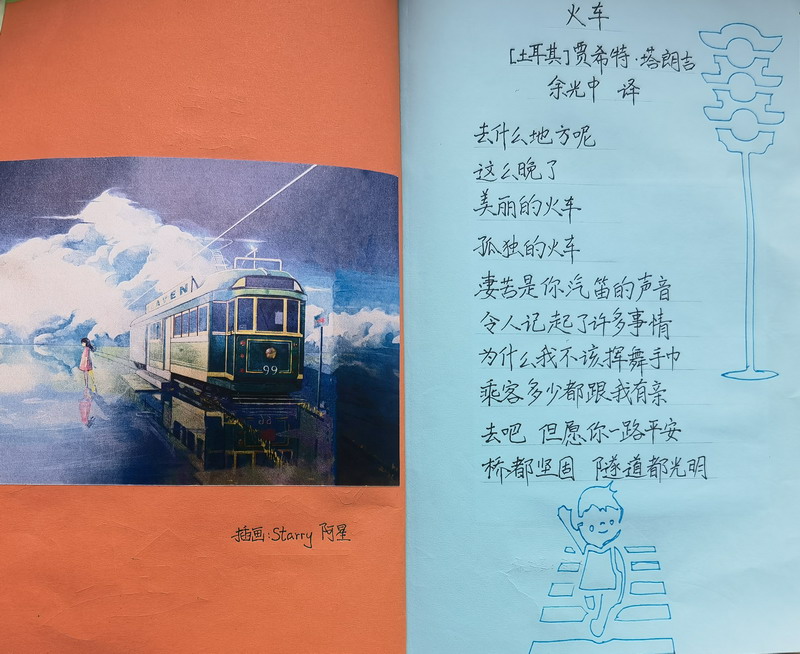 AVENA
99
插画:Starry 阿星
火车
[土耳其]贾希特·塔朗吉
余光中 译
去什么地方呢
这么晚了
美丽的火车
孤独的火车
凄苦是你汽笛的声音
令人记起了许多事情
为什么我不该挥舞手巾
乘客多少都跟我有亲
去吧 但愿你一路平安
桥都坚固 隧道都光明